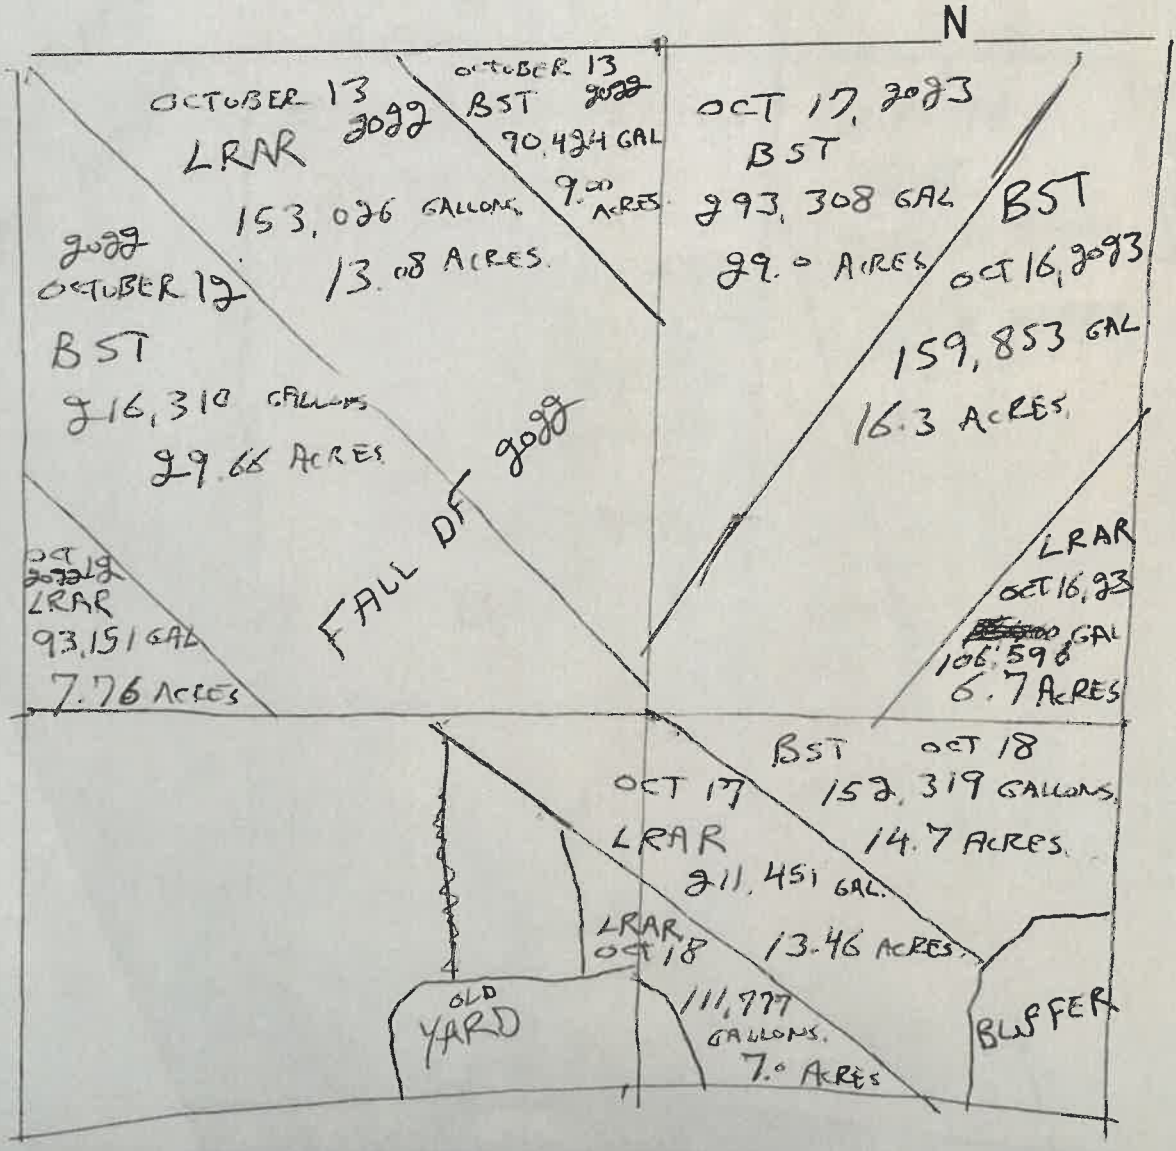 N
OCTOBER 13
2022
LRAR
153,026 GALLONS
13.08 ACRES.
OCTOBER 13
BST 2022
90,424 GAL
9.00
ACRES.
OCT 17, 2023
BST
293,308 GAL
29.0 ACRES
BST
OCT 16, 2023
159,853 GAL
16.3 ACRES.
2022
OCTOBER 12
BST
216,310 GALLONS
29.66 ACRES
FALL OF 2022
OCT 12
2022
LRAR
93,151 GAL
7.76 ACRES
LRAR
OCT 16, 23
GAL
106,596
6.7 ACRES
BST OCT 18
152,319 GALLONS.
14.7 ACRES.
OCT 17
LRAR
211,451 GAL.
13.46 ACRES.
LRAR
OCT 18
111,777
GALLONS.
7.0 ACRES
OLD
YARD
BUFFER